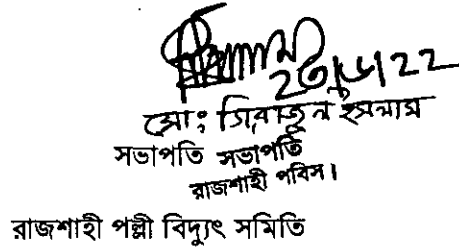 মোঃ সিরাজুল ইসলাম
সভাপতি সভাপতি
রাজশাহী পবিস।
রাজশাহী পল্লী বিদ্যুৎ সমিতি